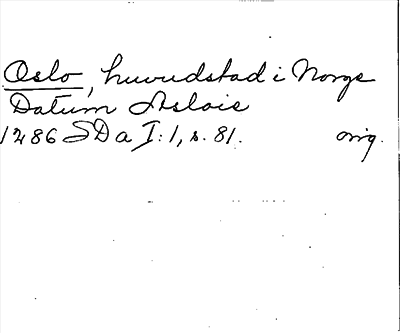 Oslo, huvudstad i Norge
Datum Asloie
1286 SD a I:1, s. 81. orig.